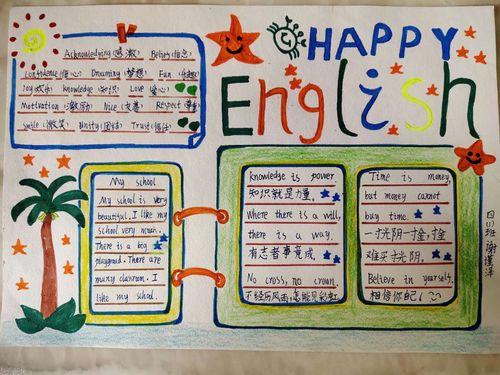 HAPPY
English
Acknowledging (感激) Belief (信念)
Confidence (信心) Dreaming (梦想) Fun
Joy (欢乐) Knowledge (知识) Love (爱心)
Motivation (激励) Nice (友善) Respect (尊重)
Smile (微笑) Unity (团结) Trust (信任)
My school
My school is very
beautiful. I like my
school very much.
There is a big
playground. There are
many classroom. I
like my school.
knowledge is power
知识就是力量.
Where there is a will,
there is a way.
有志者事竟成.
No cross, no crown.
不经历风雨,怎能见彩虹
Time is money,
but money cannot
buy time.
一寸光阴一寸金,寸金
难买寸光阴.
Believe in yourself.
相信你自己!
四(1)班